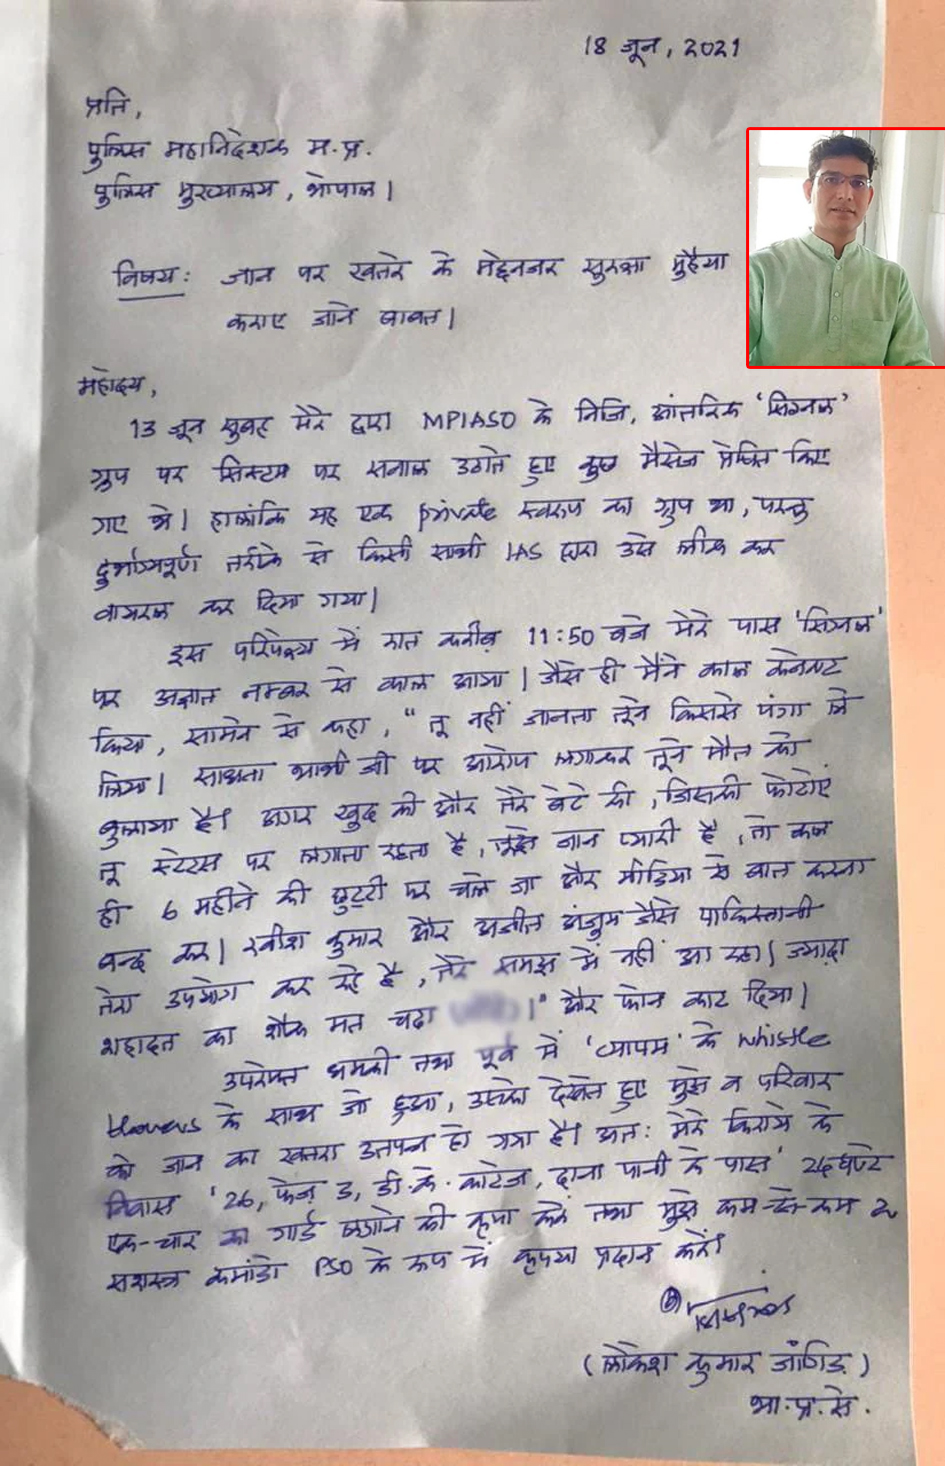 18 जून, 2021
प्रति,
पुलिस महानिदेशक म.प्र.
पुलिस मुख्यालय, भोपाल।
विषय: जान पर खतरे के मद्देनजर सुरक्षा मुहैया
कराए जाने बाबत।
महोदय,
13 जून सुबह मेरे द्वारा MPIASO के निजि, आंतरिक 'सिग्नल'
ग्रुप पर सिस्टम पर सवाल उठाते हुए कुछ मैसेज प्रेषित किए
गए थे। हालांकि यह एक private स्वरूप का ग्रुप था, परन्तु
दुर्भाग्यपूर्ण तरीके से किसी साथी IAS द्वारा उसे लीक कर
वायरल कर दिया गया।
इस परिपेक्ष्य में रात करीब 11:50 बजे मेरे पास 'सिग्नल'
पर अज्ञात नम्बर से काल आया। जैसे ही मैंने काल कनेक्ट
किया, सामने से कहा, "तू नहीं जानता तूने किससे पंगा ले
लिया। साधना भाभी जी पर आरोप लगाकर तूने मौत को
बुलाया है। अगर खुद की और तेरे बेटे की, जिसकी फोटोएं
तू स्टेटस पर लगाता रहता है, तुझे जान प्यारी है, तो कल
ही 6 महीने की छुट्टी पर चले जा और मीडिया से बात करना
बन्द कर। रवीश कुमार और अजीत अंजुम जैसे पाकिस्तानी
तेरा उपयोग कर रहे है, तेरे समझ में नहीं आ रहा। ज्यादा
शहादत का शौक मत चढा ।" और फोन काट दिया।
उपरोक्त धमकी तथा पूर्व में 'व्यापम' के whistle
blowers के साथ जो हुआ, उसको देखते हुए मुझे व परिवार
को जान का खतरा उत्पन्न हो गया है। अत: मेरे किराये के
निवास '26, फेज़ 3, डी.के. काटेज, दाना पानी के पास' 24 घण्टे
एक-चार का गार्ड लगाने की कृपा करें तथा मुझे कम-से-कम 2
सशस्त्र कमांडो PSO के रूप में कृपया प्रदान करें।
(लोकेश कुमार जांगिड़)
भा.प्र.से.